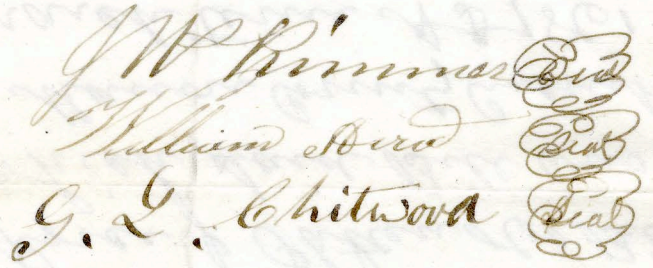 J W Rimmer Seal
William Hird Seal
G. L. Chitwood Seal